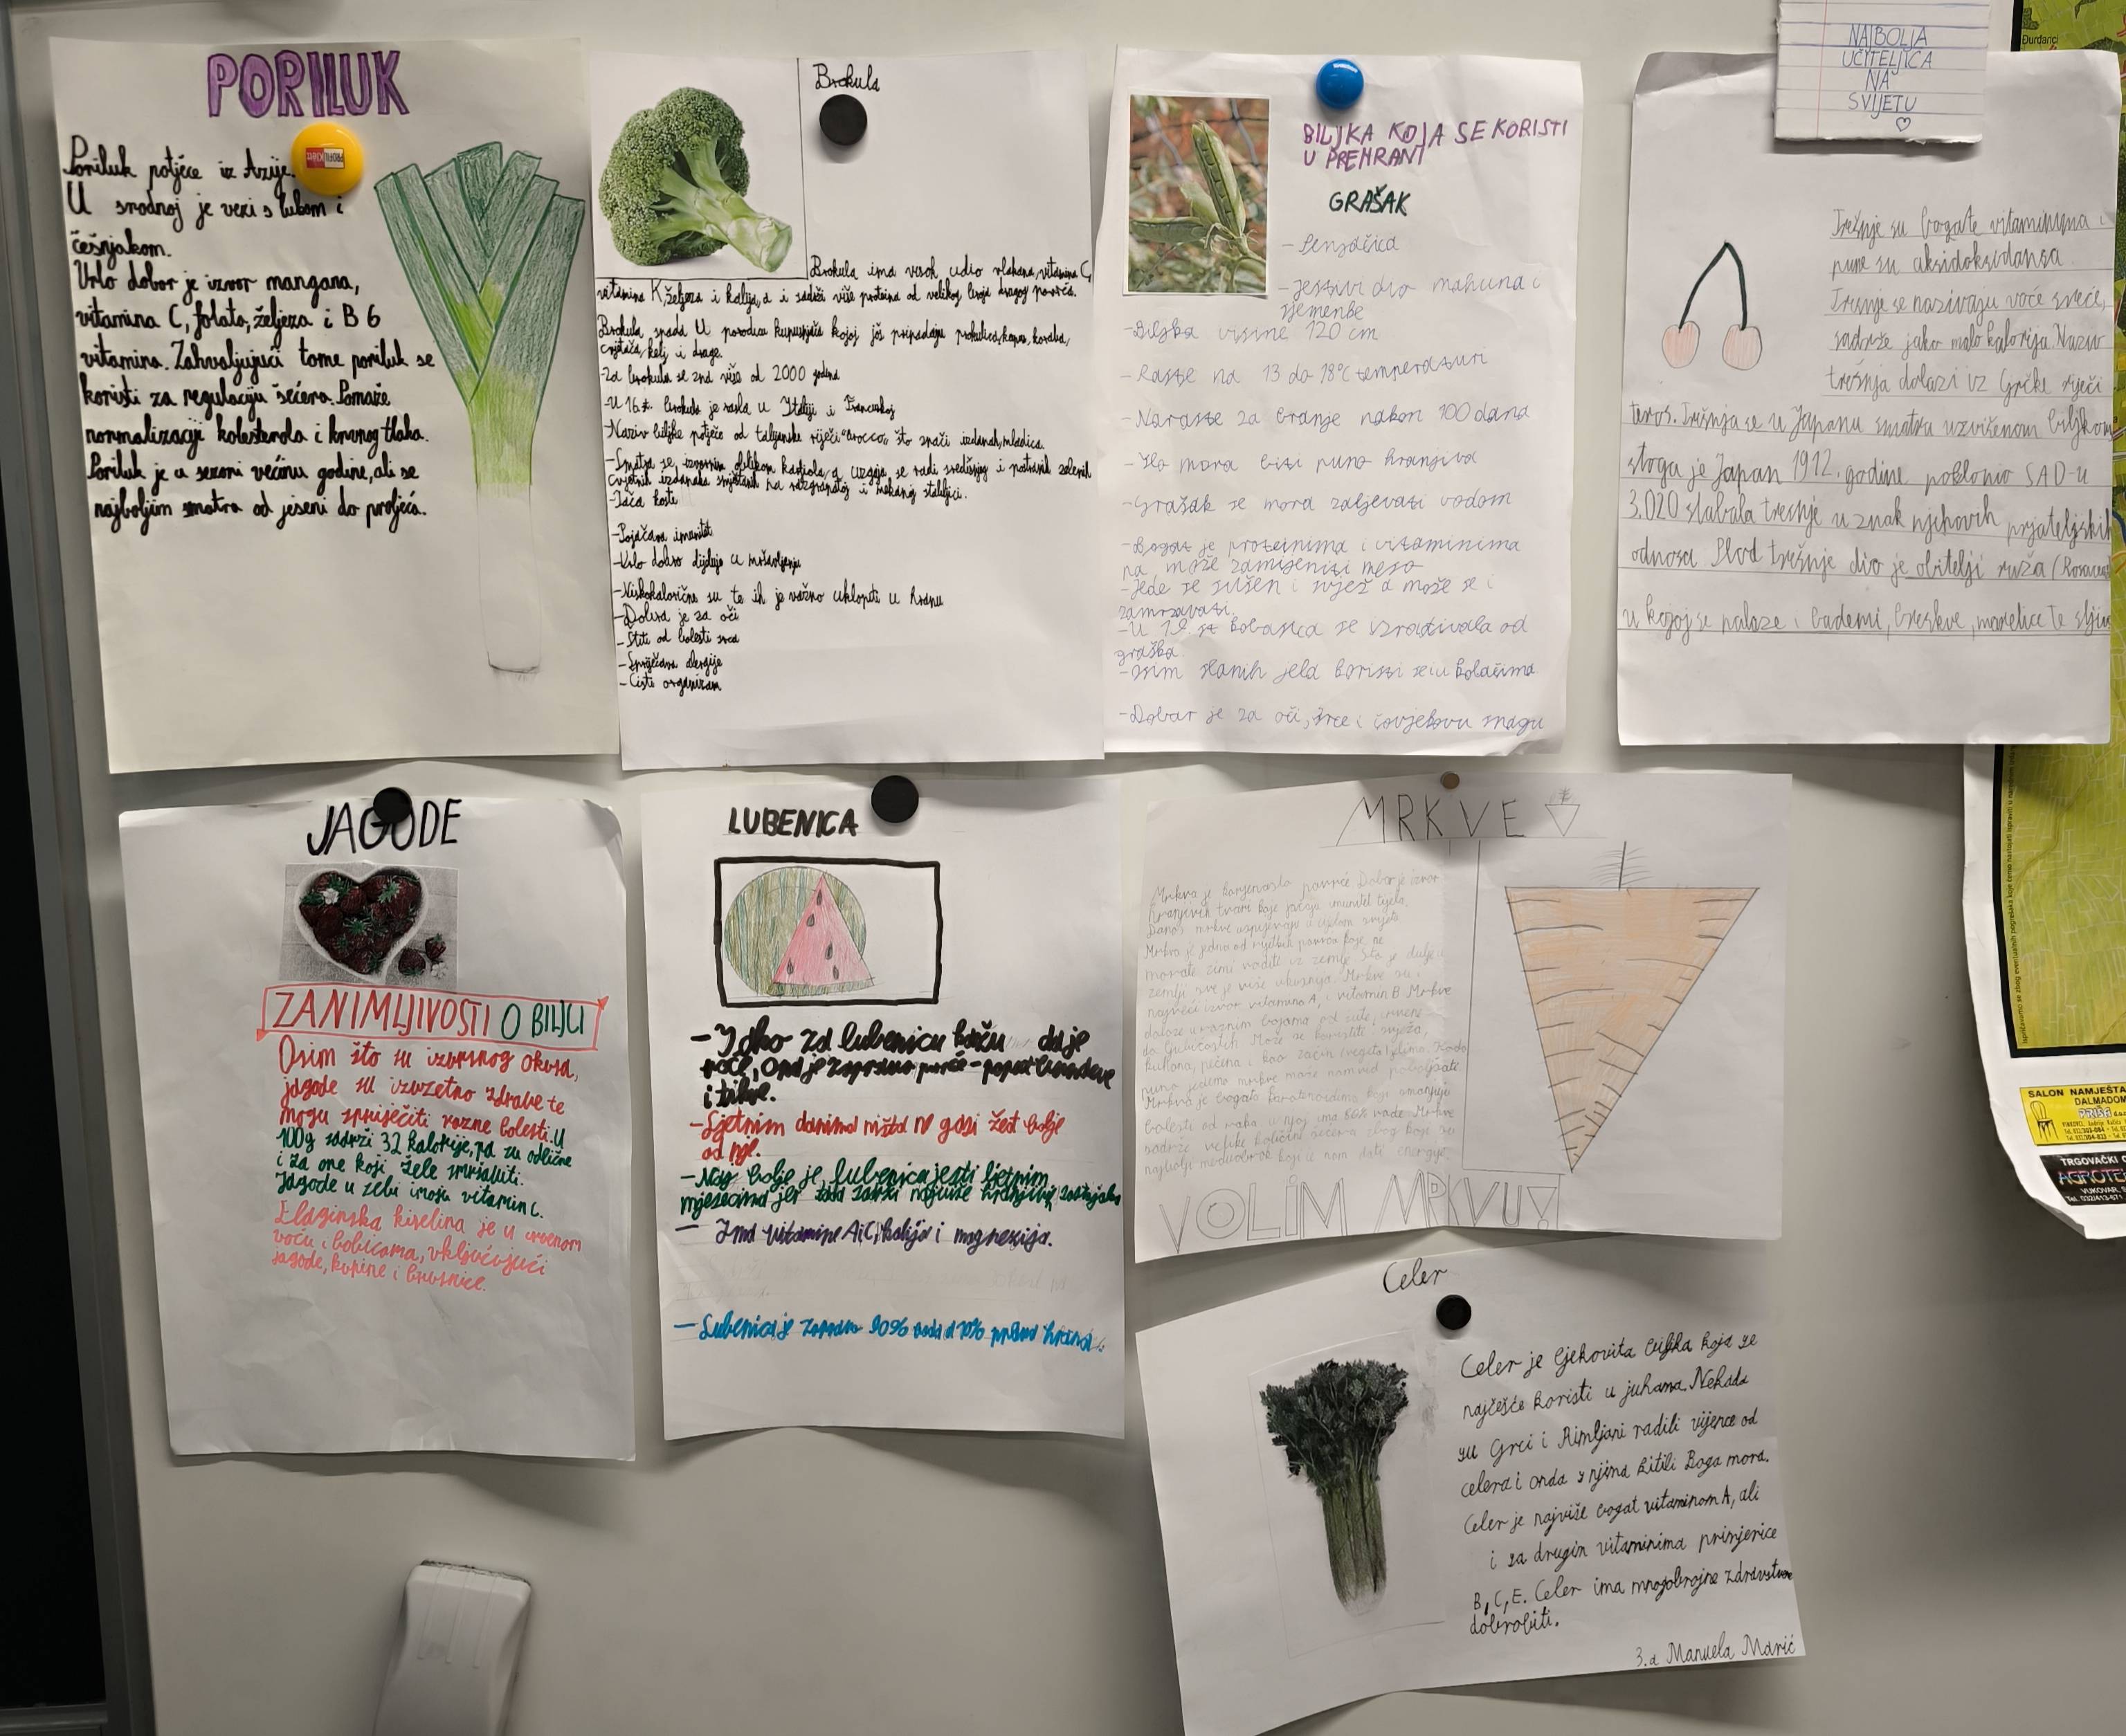 PORILUK
Poriluk potječe iz Azije.
U srodnoj je vezi s lukom i
češnjakom.
Vrlo dobar je izvor mangana,
vitamina C, folata, željeza i B 6
vitamina. Zahvaljujući tome poriluk se
koristi za regulaciju šećera. Pomaže
normalizaciji kolesterola i krvnog tlaka.
Poriluk je u sezoni većinu godine, ali se
najboljim smatra od jeseni do proljeća.
Brokula
Brokula ima visok udio vlakana, vitamina C,
vitamina K, željeza i kalija, a i sadrži više proteina od velikog broja drugog povrća.
Brokula spada U porodicu kupusnjača kojoj još pripadaju prokulica, kupus, koraba,
cvjetača, kelj i druge.
-Za brokulu se zna više od 2000 godina
-U 16.st. brokula je rasla u Italiji i Francuskoj
-Naziv biljke potječe od talijanske riječi "brocco" što znači izdanak, mladica.
-Smatra se izvornim oblikom karfiola, a uzgaja se radi središnjeg i postranih zelenih
cvjetnih izdanaka smještenih na razgranatoj i mekanoj stabljici.
-Jača kosti
-Pojačava imunitet
-Vrlo dobro djeluje u mršavljenju
-Niskokalorične su te ih je važno uklopiti u hranu
-Dobra je za oči
-Štiti od bolesti srca
-Spriječava alergije
-Čisti organizam
BILJKA KOJA SE KORISTI
U PREHRANI
GRAŠAK
-Penjačica
-Jestivi dio mahuna i
sjemenke
-Biljka visine 120 cm
-Raste na 13 do 18°C temperaturi
-Naraste za branje nakon 100 dana
-Tlo mora biti puno hranjiva
-Grašak se mora zaljevati vodom
-Bogat je proteinima i vitaminima
pa može zamijeniti meso
-Jede se sušen i svjež a može se i
zamrzavati.
-U 19. st kobasica se izrađivala od
graška.
-Osim slanih jela koristi se i u kolačima
-Dobar je za oči, srce i čovjekovu snagu
NAJBOLJA
UČITELJICA
NA
SVIJETU
Trešnje su bogate vitaminima i
pune su oksidoksidansa.
Trešnje se nazivaju voće sreće,
sadrže jako malo kalorija. Naziv
trešnja dolazi iz Grčke riječi
teros. Trešnja se u Japanu smatra uzvišenom biljkom
stoga je Japan 1912. godine poklonio SAD-u
3,020 stabala trešnje u znak njihovih prjateljskih
odnosa. Plod trešnje dio je obitelji ruža (Rosaceae
u kojoj se nalaze i bademi, breskve, marelice te šljiv
Đurđanci
JAGODE
ZANIMLJIVOSTI O BILJCI
Osim što su izvrsnog okusa,
jagode su izuzetno zdrave te
mogu spriječiti razne bolesti. U
100g sadrži 32 kalorije, pa su odlične
i za one koji žele smršaviti.
Jagode u sebi imaju vitamin C.
Elaginska kiselina je u crvenom
voću i bobicama, uključujući
jagode, kupine i brusnice.
LUBENICA
-Iako za lubenicu kažu da je
voće, ona je zapravo povrće-poput krastavca
i tikve.
-Ljetnim danima ništa ne gasi žeđ bolje
od nje.
-Naj bolje je lubenicu jesti ljetnim
mjesecima jer tada sadrži najviše hranjivih sastojaka
-Ima vitamine A i C, kalija i magnezija.
-Lubenica je zapravo 90% voda a 10% hrana
MRKVE
Mrkva je korjenasto povrće. Dobar je izvor
hranjivih tvari koje jačaju imunitet tijela.
Danas mrkve uspijevaju u cijelom svijetu
Mrkva je jedna od rijetkih povrća koje ne
morate zimi vaditi iz zemlje što je dulje u
zemlji sve je više ukusnija. Mrkve su
najveći izvor vitamina A, i vitamin B Mrkve
dolaze u raznim bojama od žute, crvene
do ljubičastih. Može se koristiti svježa,
kuhana, pečena i kao začin (vegeta) Kada
puno jedemo mrkve može nam vid poboljšati
Mrkva je bogata karotenoidima koji smanjuju
bolesti od raka. U njoj ima 86% vode Mrkve
sadrže velike količine šećera zbog koje su
koji će nam dati energije.
VOLIM MRKVU!
Celer
Celer je ljekovita biljka koja se
najčešće koristi u juhama. Nekada
su Grci i Rimljani radili vijence od
celera i onda s njima kitili Boga mora.
Celer je najviše bogat vitaminom A, ali
i sa drugim vitaminima primjerice
B, C, E. Celer ima mnogobrojne zdravstvene
dobrobiti.
3.a Manuela Marić
SALON NAMJEŠTA
DALMADOM
PRIŠA
TRGOVAČKI C
AGROTE
VUKOVAR, S